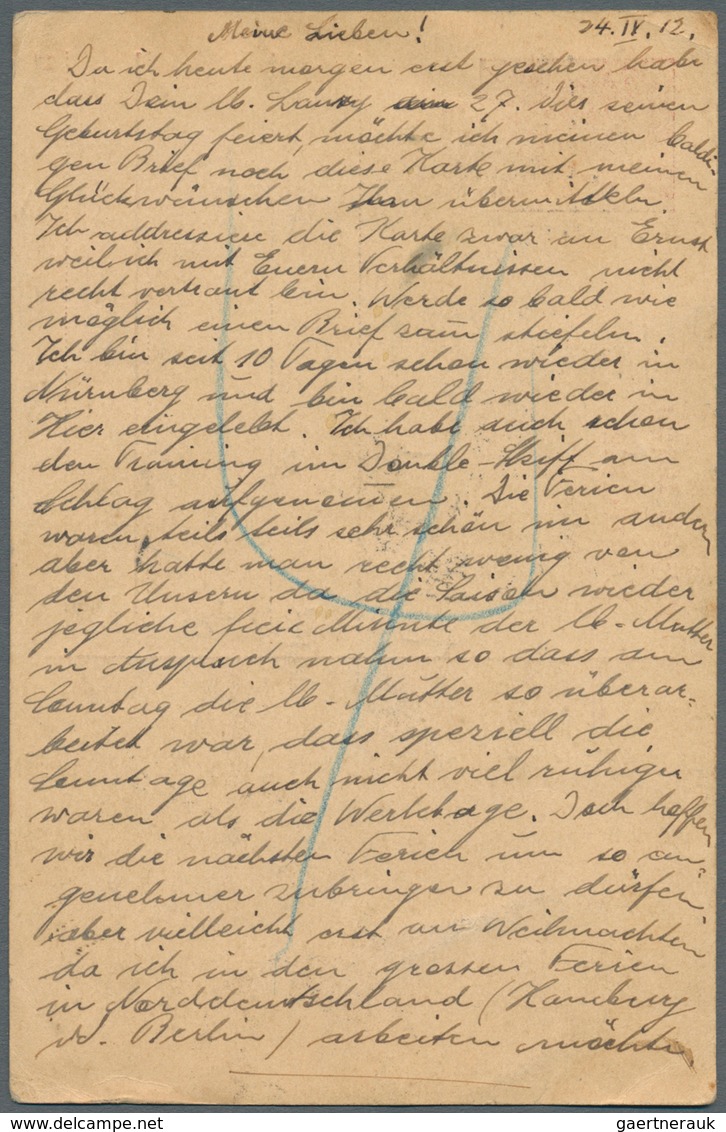 Meine Lieben! 24. IV. 12.
Da ich heute morgen erst gesehen habe
dass Dein lb. am 27. dies seinen
Geburtstag feiert, möchte ich meinen baldi-
gen Brief noch diese Karte mit meinen
Glückwünschen übermitteln.
Ich addressiere die Karte zwar an Ernst
weil ich mit Euern Verhältnissen nicht
recht vertraut bin. Werde so bald wie
möglich einen Brief zam stiefeln.
Ich bin seit 10 Tagen schon wieder in
Nürnberg und bin bald wieder in
Hier eingelebt. Ich habe auch schon
den Training im Double-Skiff am
Schlag aufgenommen. Die Ferien
waren teils teils sehr schön im andern
aber hatte man recht wenig von
den Unsern da die Saison wieder
jegliche freie Minute der lb. Mutter
in Anspruch nahm so dass am
Sonntag die lb. Mutter so überar-
beitet war, dass speziell die
Sonntage auch nicht viel ruhiger
waren als die Werktage. Doch hoffen
wir die nächsten Ferien um so an-
genehmer zubringen zu dürfen
aber vielleicht erst an Weihnachten
da ich in den grossen Ferien
in Norddeutschland (Hamburg
od. Berlin) arbeiten möchte.
gaertnerauk